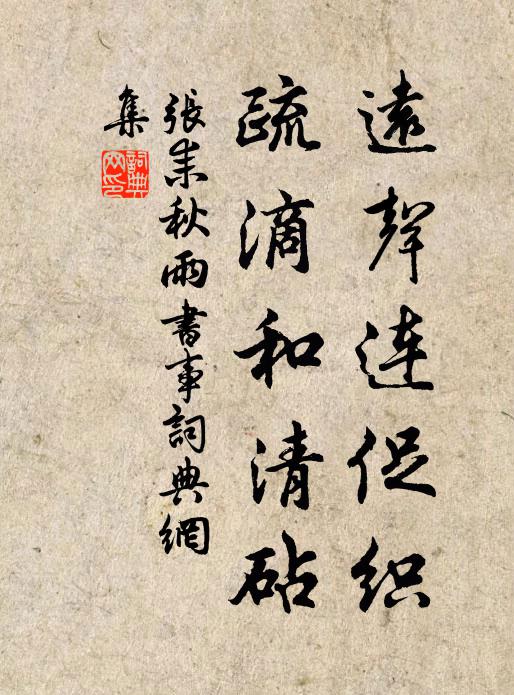 遠聲連促织
疏滴和清砧
張耒秋雨書事詞典網
集
詞典
网印